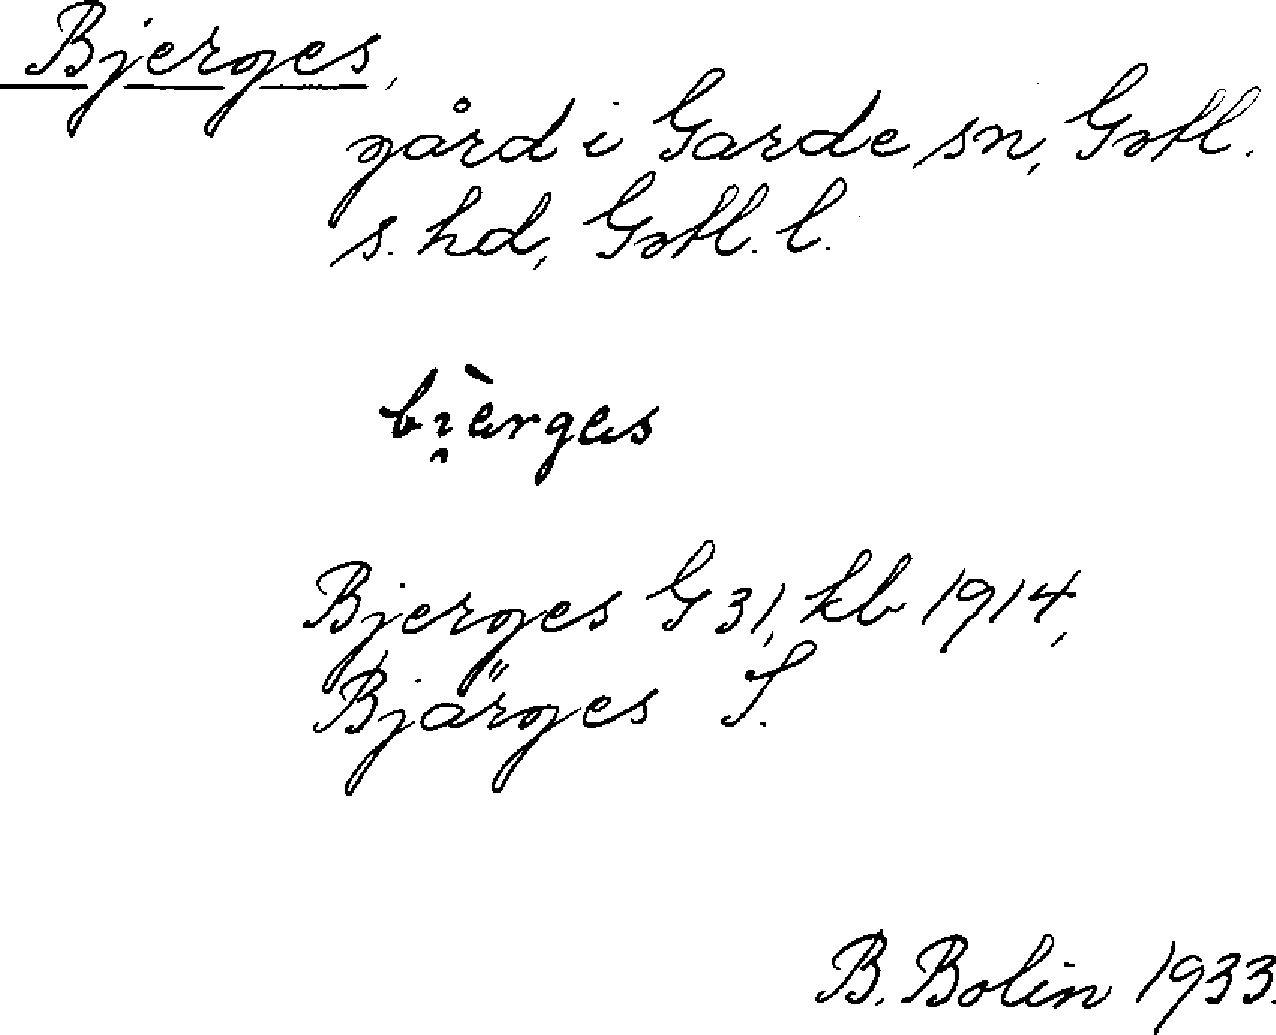 Bjerges,
gård i Garde sn, Gotl.
s. hd, Gotl. l.
bi̯èrgæs
Bjerges G 31, kb 1914,
Bjärges S.
B. Bolin 1933.